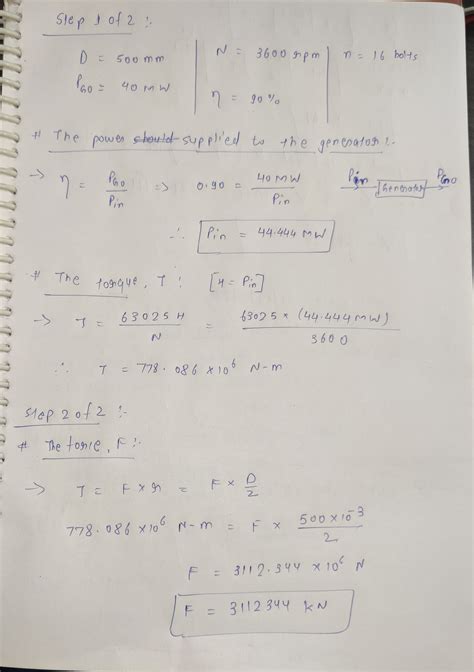 Step 1 of 2 :-
D = 500 mm
P_GO = 40 MW
N = 3600 rpm
η = 90 %
n = 16 bolts
# The power should supplied to the generator :-
→ η = P_GO / P_in => 0.90 = 40 MW / P_in
P_in Generator P_GO
∴ P_in = 44.444 MW
# The torque, T : [H = P_in]
→ T = 63025 H / N = 63025 × (44.444 MW) / 3600
∴ T = 778.086 × 10^6 N-m
Step 2 of 2 :-
# The force, F :-
→ T = F × r = F × D / 2
778.086 × 10^6 N-m = F × 500 × 10^-3 / 2
F = 3112.344 × 10^6 N
F = 3112344 kN